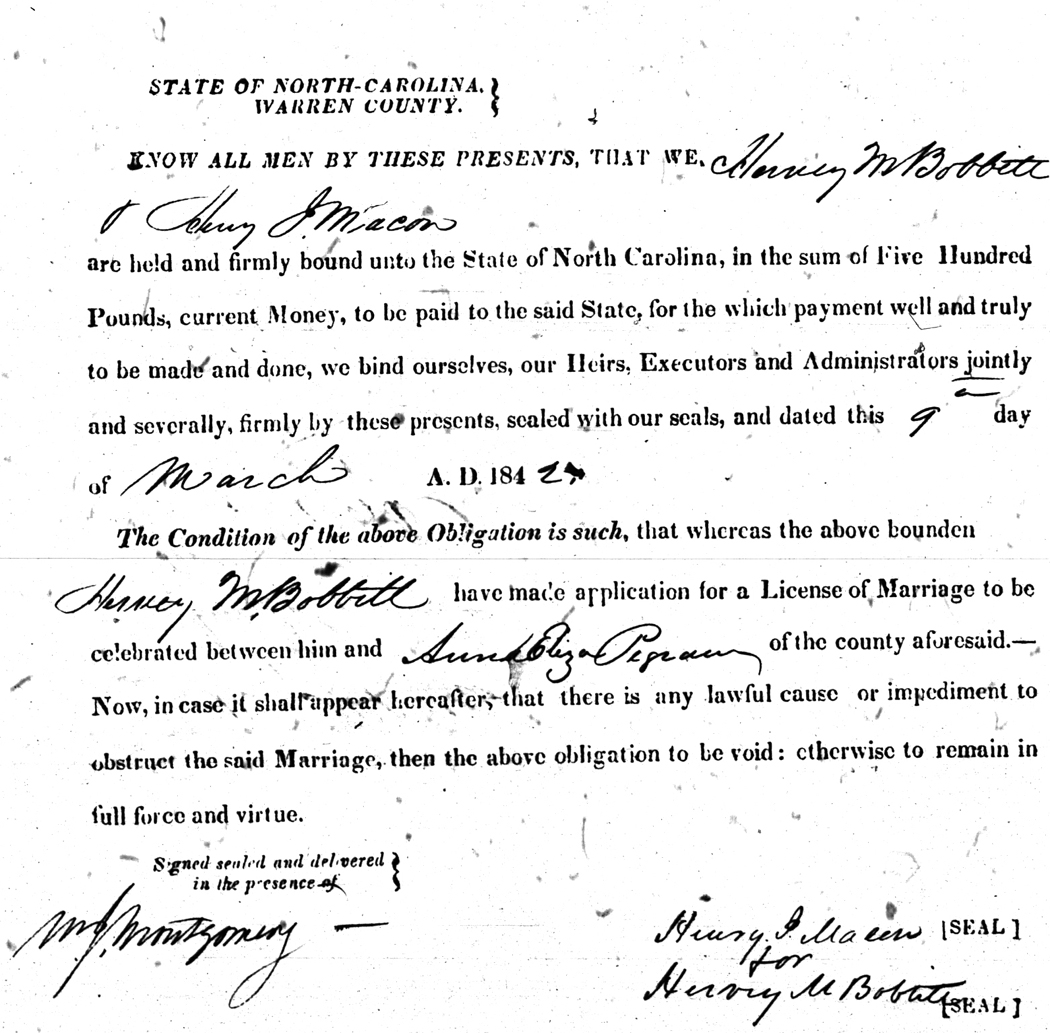 STATE OF NORTH-CAROLINA.
WARREN COUNTY.
KNOW ALL MEN BY THESE PRESENTS, THAT WE, Hervey M Bobbitt
& Henry J. Macon
are held and firmly bound unto the State of North Carolina, in the sum of Five Hundred
Pounds, current Money, to be paid to the said State, for the which payment well and truly
to be made and done, we bind ourselves, our Heirs, Executors and Administrators jointly
and severally, firmly by these presents, sealed with our seals, and dated this 9 day
of March A. D. 184 2
The Condition of the above Obligation is such, that whereas the above bounden
Hervey M. Bobbitt have made application for a License of Marriage to be
celebrated between him and Ann Eliza Pegram of the county aforesaid.—
Now, in case it shall appear hereafter, that there is any lawful cause or impediment to
obstruct the said Marriage, then the above obligation to be void: otherwise to remain in
full force and virtue.
Signed sealed and delivered
in the presence of
Wm J. Montgomery —
Henry J. Macon [SEAL]
for
Hervey M Bobbitt [SEAL]